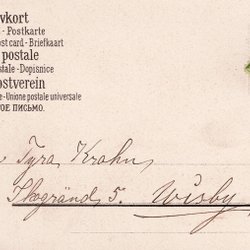 vkort
- Postkarte
ost card - Briefkaart
postale
stale - Dopisnice
ostverein
e - Union postale universale
ТОЕ ПИСЬМО.
Tyra Krohn,
Skogränd 5. Wisby